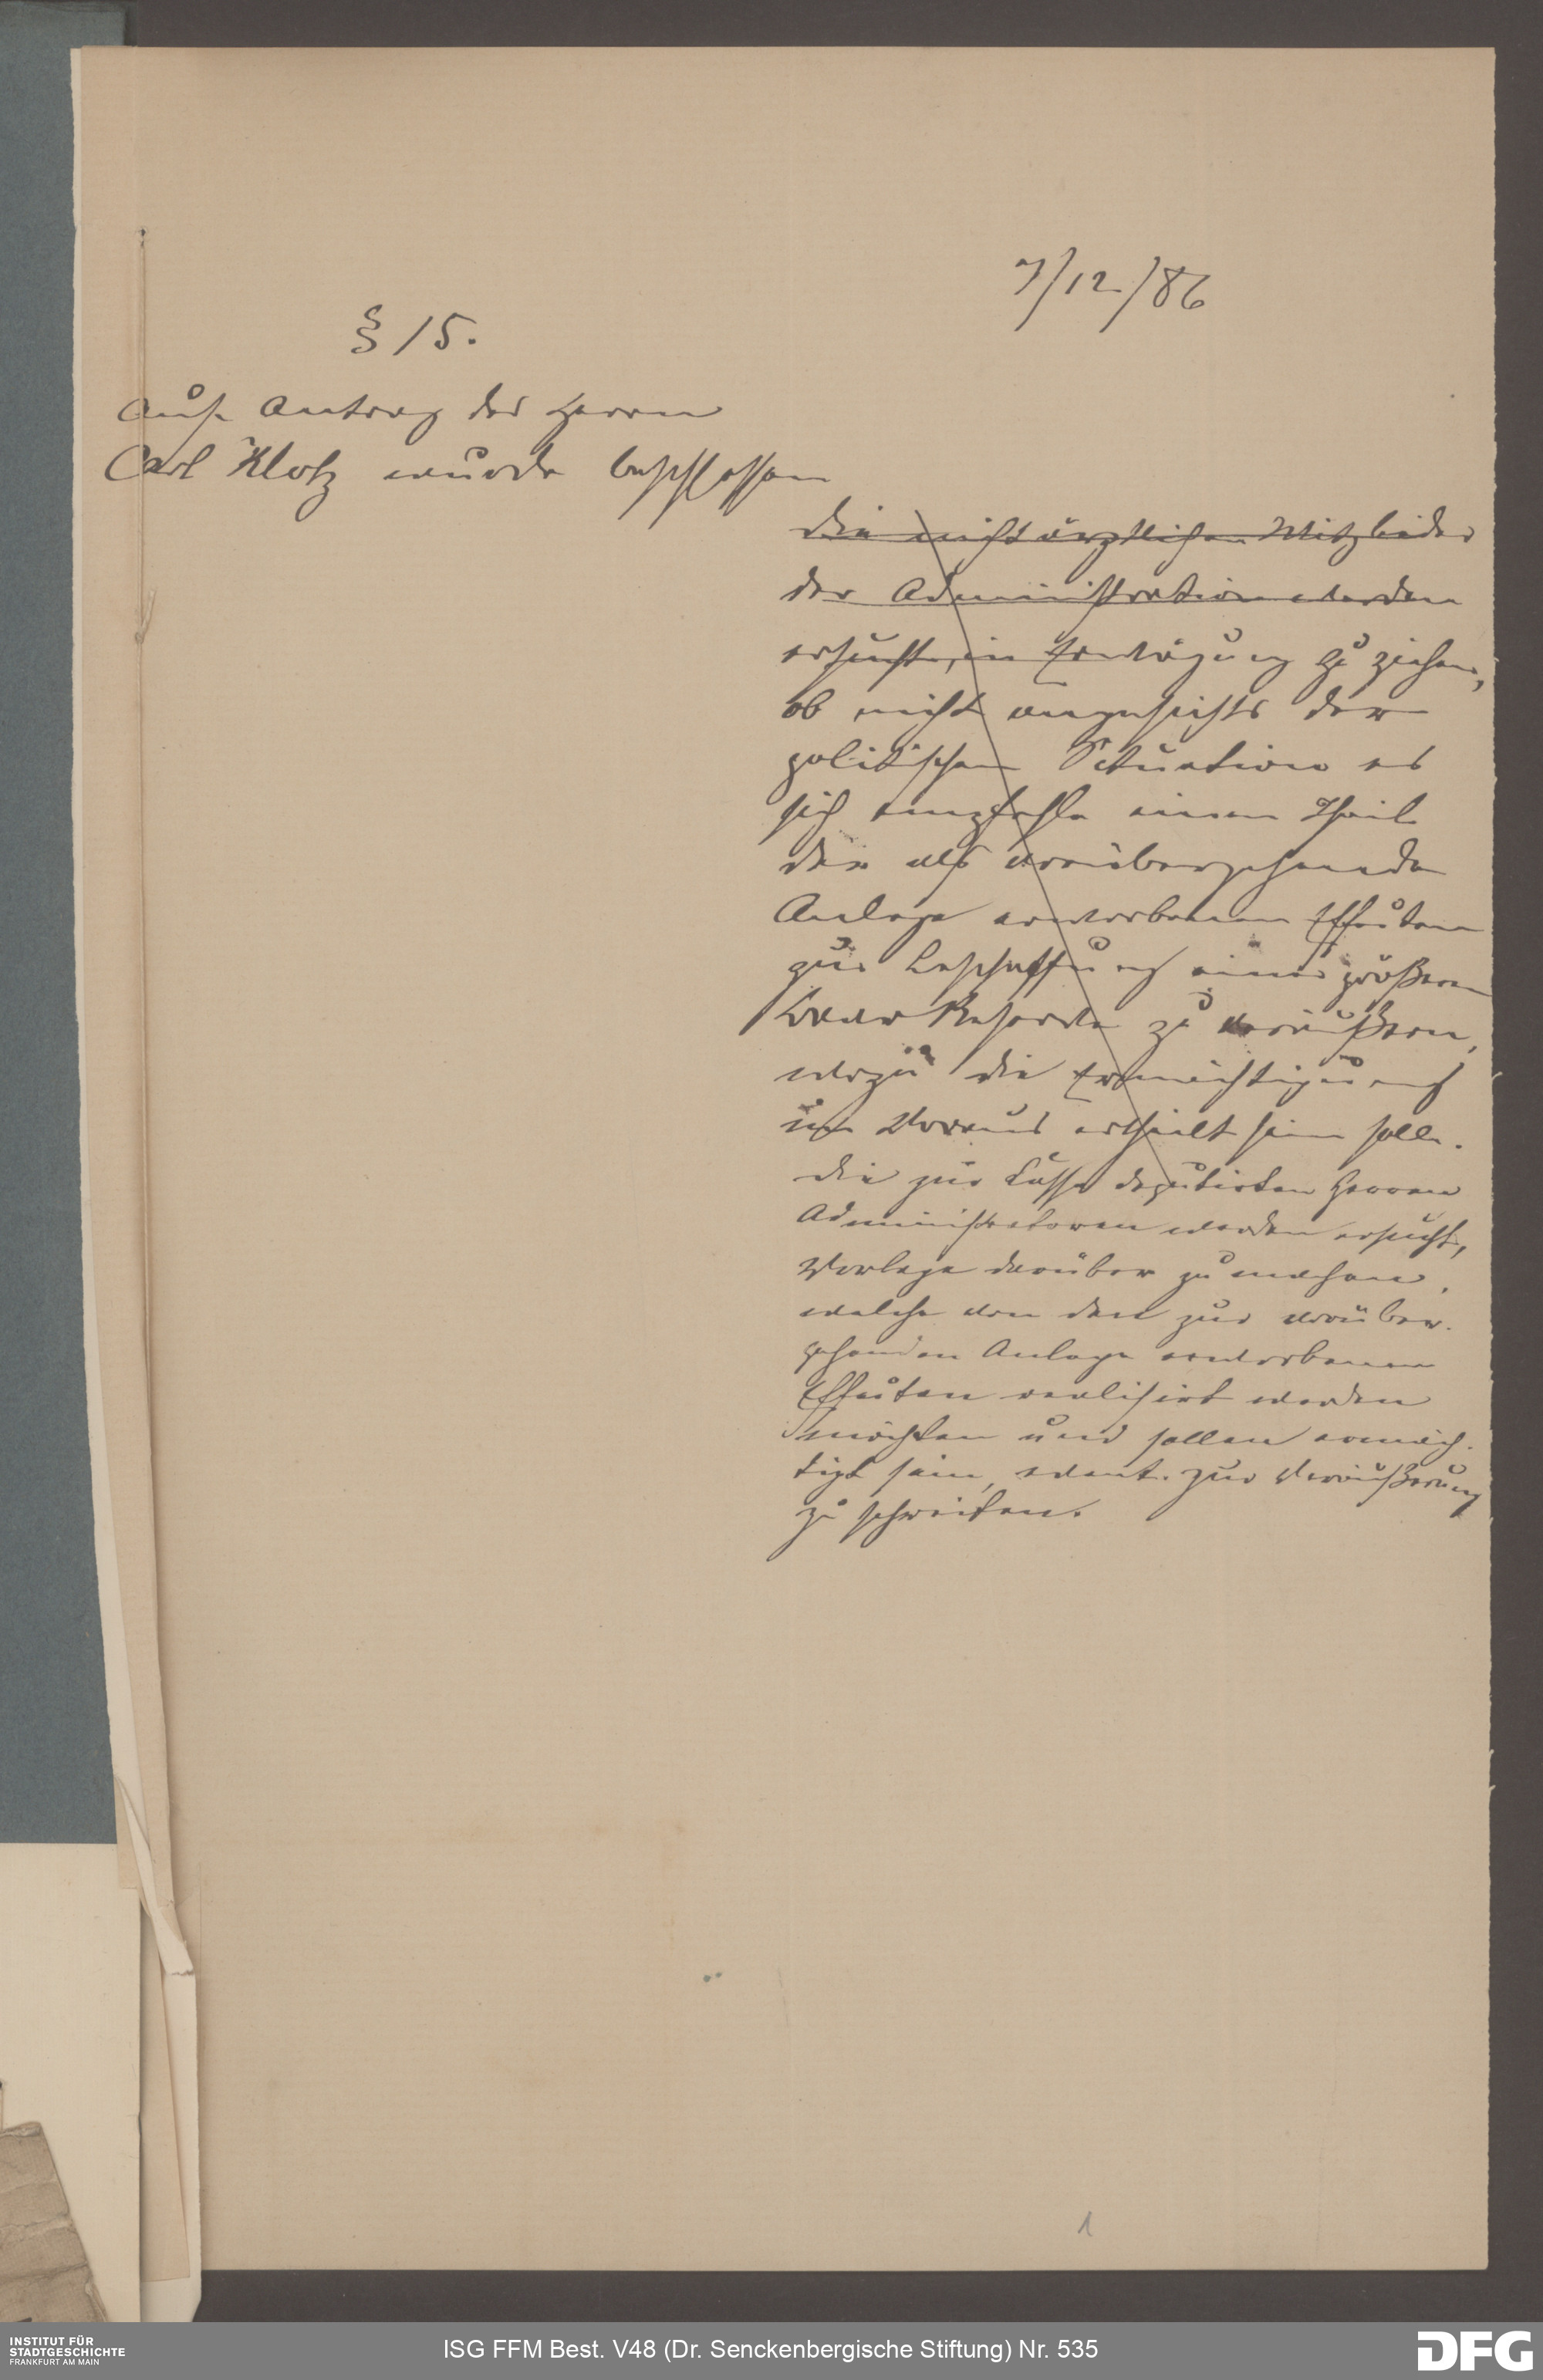 7/12/86
§ 15.
Auf Antrag des Herrn
Carl Klotz wurde beschlossen
die nicht ärztlichen Mitglieder
der Administration werden
ersucht, in Erwägung zu ziehen,
ob nicht angesichts der
politischen Situation es
sich empfehle einen Theil
der als vorübergehende
Anlage erworbenen Effecten
zur Beschaffung einer größeren
Baar Reserve zu veräußern,
wozu die Ermächtigung
im Voraus ertheilt sein solle.
die zur Casse deputirten Herren
Administratoren werden ersucht,
Vorlage darüber zu machen,
welche von den zur vorüber-
gehenden Anlage erworbenen
Effecten realisirt werden
möchten und sollen ermäch-
tigt sein, event. zur Veräußerung
zu schreiten.
1
INSTITUT FÜR
STADTGESCHICHTE
FRANKFURT AM MAIN
ISG FFM Best. V48 (Dr. Senckenbergische Stiftung) Nr. 535
DFG